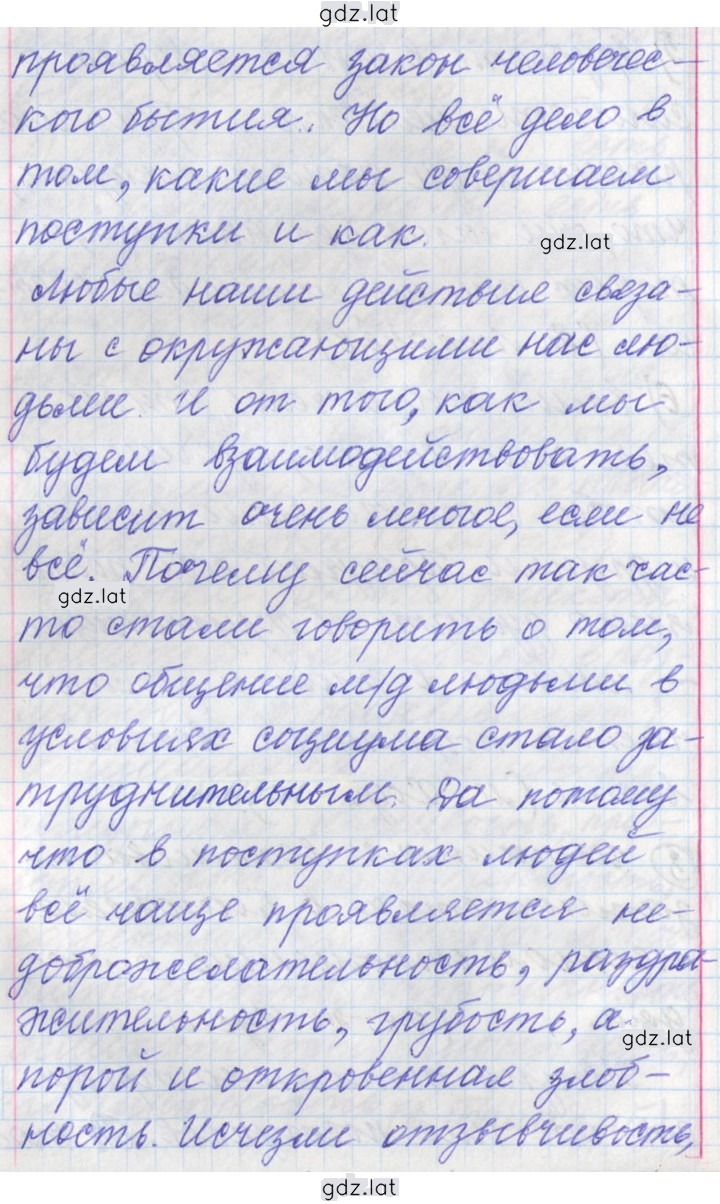 gdz.lat
проявляется закон человечес-
кого бытия. Но всё дело в
том, какие мы совершаем
поступки и как.
gdz.lat
Любые наши действия связа-
ны с окружающими нас лю-
дьми. И от того, как мы
будем взаимодействовать,
зависит очень многое, если не
всё. Почему сейчас так час-
gdz.lat
то стали говорить о том,
что общение м/д людьми в
условиях социума стало за-
труднительным. Да потому
что в поступках людей
всё чаще проявляется не-
доброжелательность, раздра-
жительность, грубость, а
gdz.lat
порой и откровенная злоб-
ность. Исчезли отзывчивость,
gdz.lat